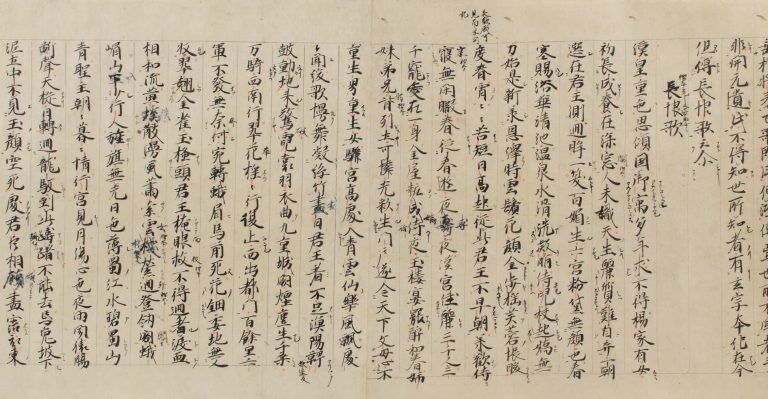 非開元遺民不得知世所知者有玄宗本紀在今
但傳長恨歌云尒
長恨歌
漢皇重色思傾國御寓多年求不得楊家有女
初長成養在深窓人未識天生麗質難自弃一朝
選在君王側迴眸一笑百媚生六宮粉黛無顏色春
寒賜浴華清池温泉水滑洗凝脂侍兒扶起嬌無
力始是新承恩澤時雲鬢花顏金步搖芙蓉帳暖
度春宵々々苦短日高起從此君王不早朝承歡侍
寢無閑暇春從春遊夜專夜漢宮佳麗三千人三
千寵愛在一身金屋粧成侍夜玉樓宴罷醉和春姉
妹弟兄皆列土可憐光彩生門々遂令天下父母心不
重生男重生女驪宮高處入青雲仙樂風飄處
々聞緩歌慢舞凝絲竹盡日君王看不足漁陽鞞
鼓動地來驚破霓裳羽衣曲九重城闕煙塵生千乘
万騎西南行翠花搖々行復止西出都門百餘里六
軍不發無奈何宛轉蛾眉馬前死花鈿委地無人
收翠翹金雀玉搔頭君王掩眼救不得迴看淚血
相和流黃埃散漫風蕭索雲棧縈迴登釼閣蛾
嵋山下少行人旌旗無光日色薄蜀江水碧蜀山
青聖主朝々暮々情行宮見月傷心色夜雨聞猿腸
斷聲天旋日轉迴龍馭到此躊躇不能去馬嵬坡下
泥土中不見玉顏空死處君臣相顧盡霑衣東